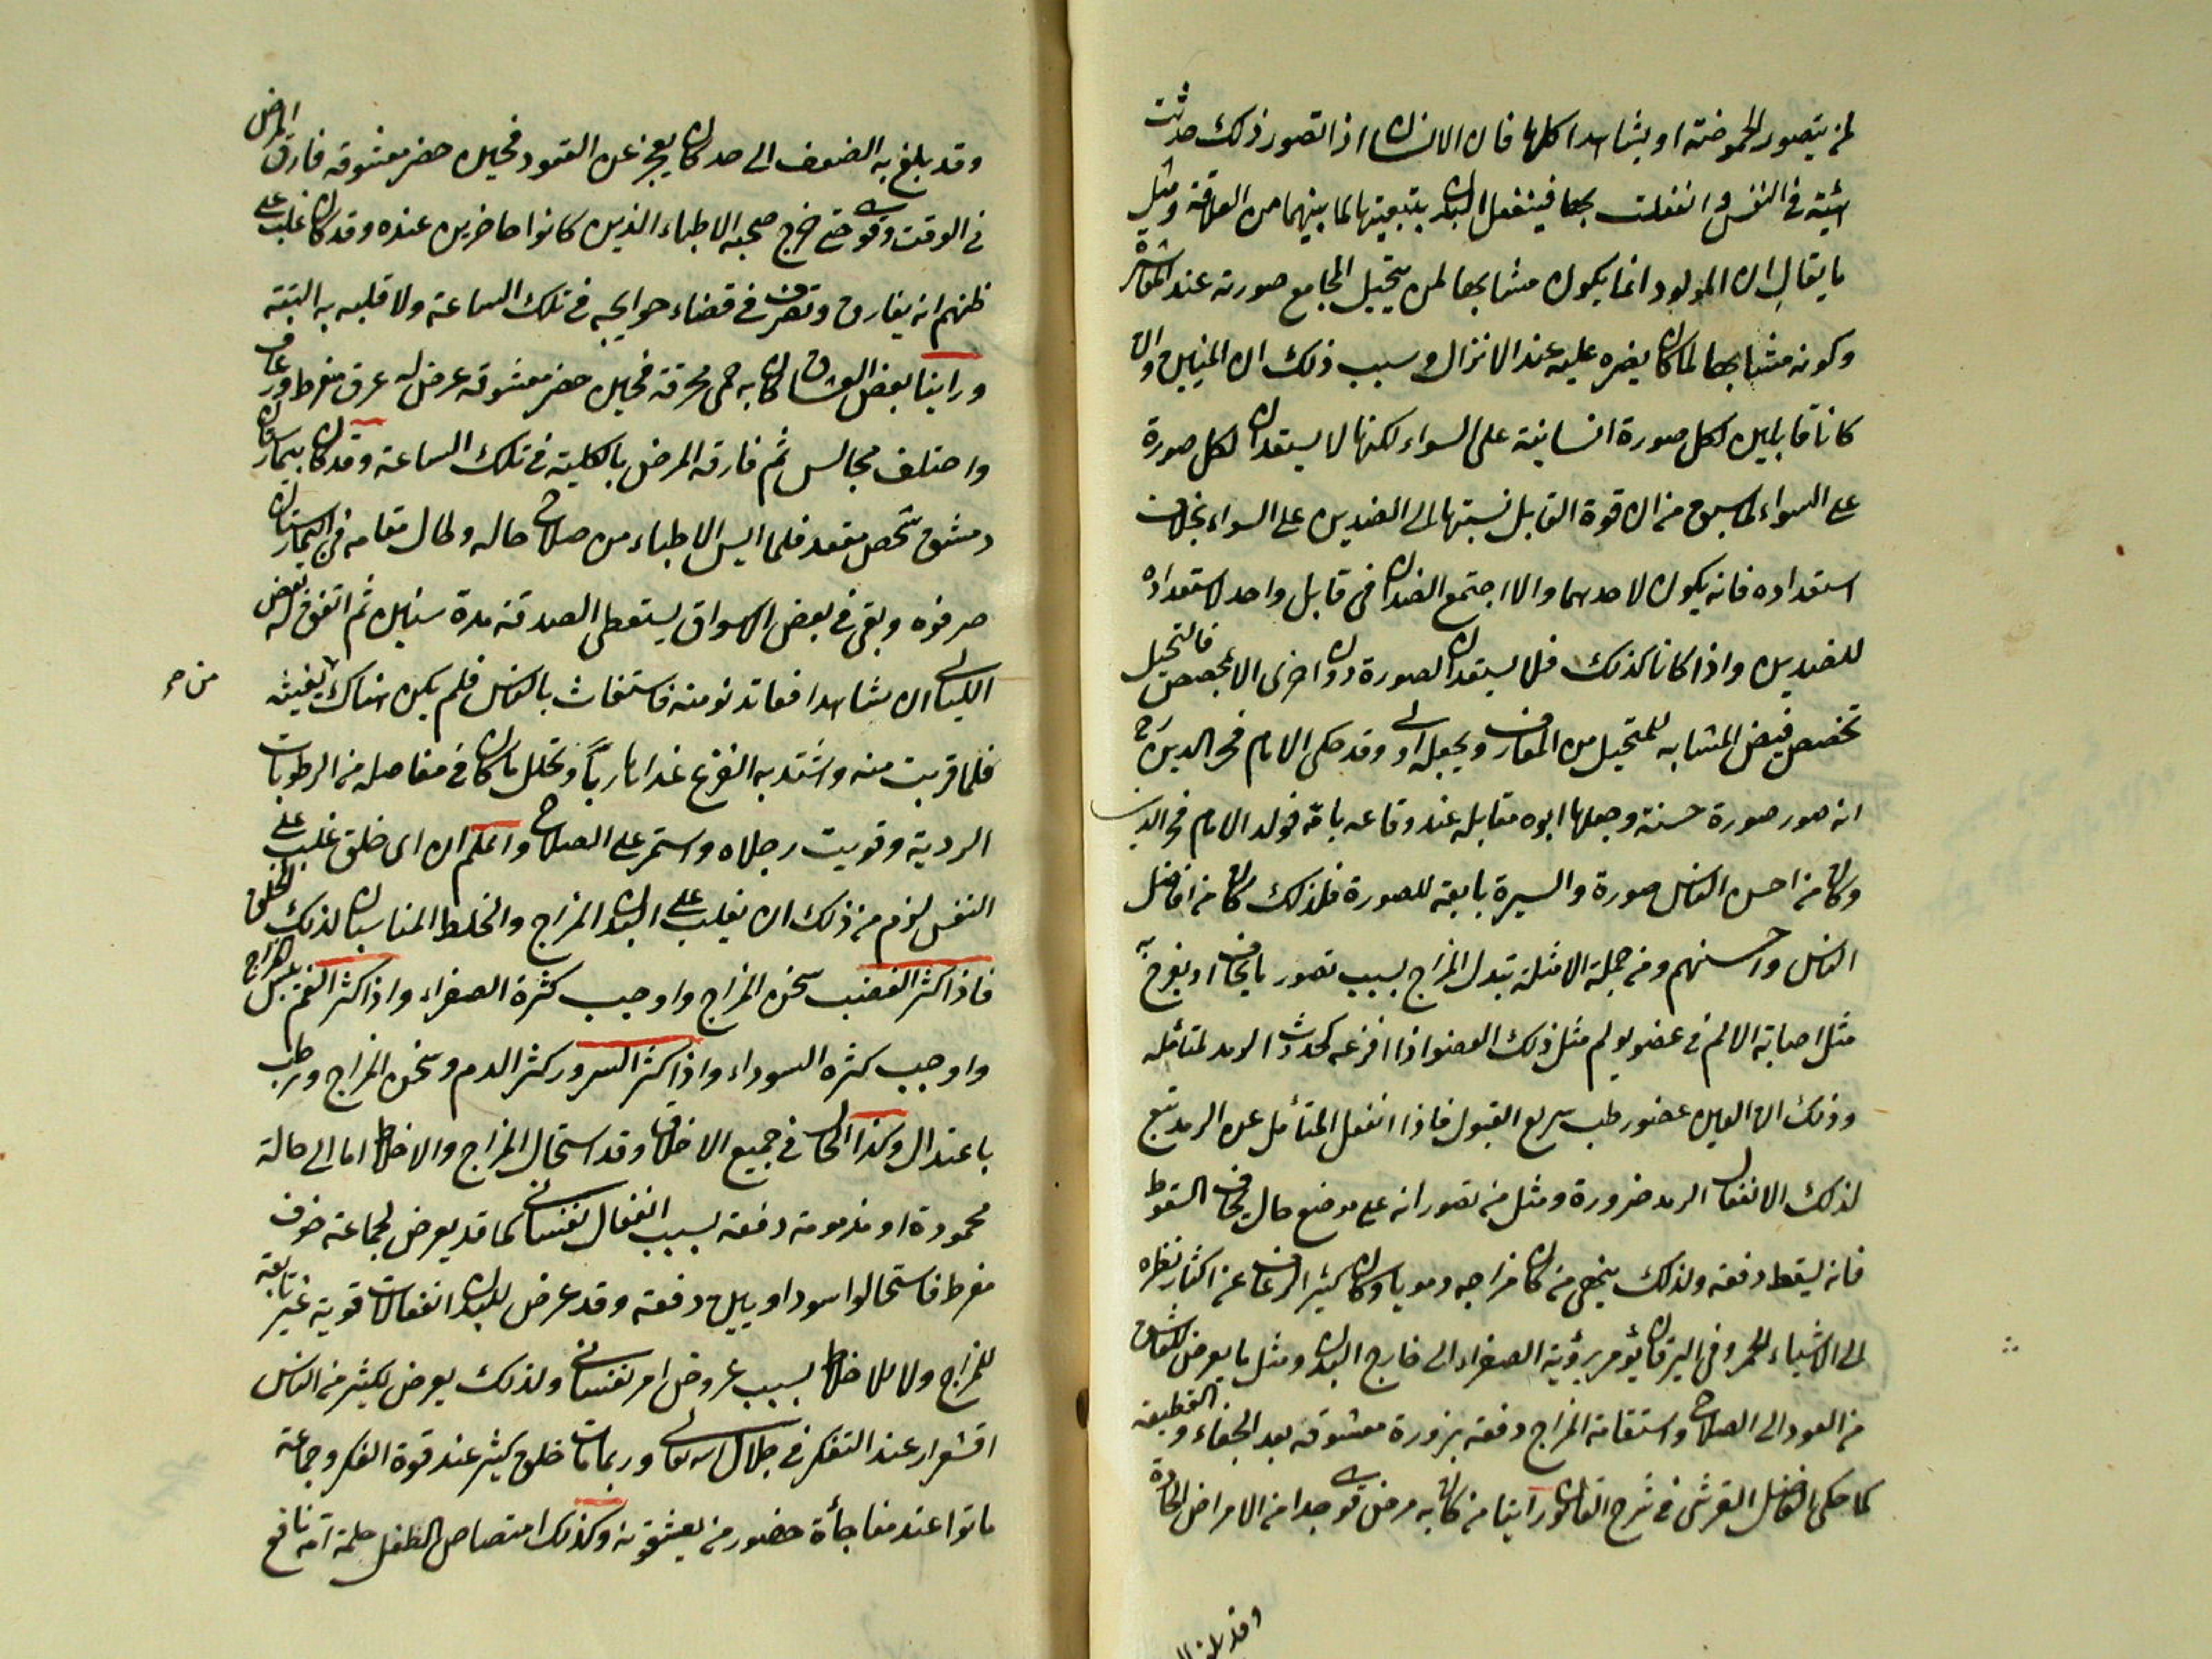 لمن يتصور الحموضة او يشاهد اكلها فان الانسان اذا تصور ذلك حدثت
هيئة في النفس وانفعلت بها فينفعل البدن بتبعيتها لما بينهما من العلاقة ومثل
ما يقال ان المولود انما يكون مشابها لمن يتخيل المجامع صورته عند المباشرة
وكونه مشابها لما كان عليه عند الانزال وسبب ذلك ان المنيين وان
كانا قابلين لكل صورة انسانية على السواء لكنها لا يستعدان لكل صورة
على السواء لما سبق من ان قوة القابل نسبتها الى الضدين على السواء بخلاف
استعداده فانه يكون لاحدهما والا اجتمع الضدان في قابل واحد لاستعداده
للضدين واذا كانا كذلك فلا يستعدان لصورة دون اخرى الا بمخصص فالتخيل
تخصص فيض المشابه للمتخيل من المفارق ويجعله اولى وقد حكى الامام فخر الدين رح
انه صور صورة حسنة وجعلها ابوه مقابله عند وقاعه بامه فولد الامام فخر الدين
وكان من احسن الناس صورة والسيرة تابعة للصورة فلذلك كان من افاضل
الناس واحسنهم ومن جملة الامثلة تبدل المزاج بسبب تصور ما يخاف او يفرح به
مثل اصابة الالم في عضو يولم مثل ذلك العضو اذا افزعه كحدوث الرمد لمتأمله
وذلك ان العين عضو رطب سريع القبول فاذا انفعل المتأمل عن الرمد تبع
لذلك الانفعال الرمد ضرورة ومثل من تصور انه على موضع عال يخاف السقوط
فانه يسقط دفعة ولذلك ينهى من كان مزاجه دمويا وكان كثير الرعاف عن اكثار نظره
الى الاشياء الحمر وفي اليرقان يؤمر برؤية الصفراء الى خارج البدن ومثل ما يعرض للعاشق
من العود الى الصلاح واستقامة المزاج دفعة بزورة معشوقه بعد الجفاء والقطيعة
كما حكى الفاضل القرشي في شرح القانون راينا من كان به مرض قوي جدا من الامراض الحادة
وقد بلغ
وقد بلغ به الضعف الى حد كان يعجز عن القعود فحين حضر معشوقه فارق المرض
في الوقت وقوي حتى خرج صحبة الاطباء الذين كانوا حاضرين عنده وقد كان غلب على
ظنهم انه يفارق وتصرف في قضاء حوايجه في تلك الساعة ولا قلبه به البتة
وراينا بعض العشاق كان به حمى محرقة فحين حضر معشوقه عرض له عرق مفرط ورعاف
واختلف مجالس ثم فارقه المرض بالكلية في تلك الساعة وقد كان ببيمارستان
دمشق شخص مقعد فلما ايس الاطباء من صلاح حاله وطال مقامه في البيمارستان
صرفوه وبقي في بعض الاسواق يستعطي الصدقة مدة سنين ثم اتفق له في بعض
الليالي ان شاهد افعا تدنو منه فاستغاث بالناس فلم يكن هناك من يغيثه
فلما قربت منه واشتد به الفزع غدا هاربا وتحلل ما كان في مفاصله من الرطوبات
الردية وقويت رجلاه واستمر على الصلاح واعلم ان اى خلق غلب على
النفس لزم من ذلك ان يغلب على البدن المزاج والخلط المناسبان لذلك الخلق
فاذا كثر الغضب سخن المزاج واوجب كثرة الصفراء واذا كثر الغم يبس المزاج
واوجب كثره السوداء واذا كثر السرور كثر الدم وسخن المزاج ورطب
باعتدال وكذا الحال في جميع الاخلاق وقد استحال المزاج والاخلاط اما الى حالة
محمودة او مذمومة دفعة بسبب انفعال نفساني كما قد يعرض لجماعة خوف
مفرط فاستحالوا سودا وييں دفعة وقد عرض للبدن انفعالات قوية غير تابعة
للمزاج ولا للاخلاط بسبب عروض امر نفساني ولذلك يعرض لكثير من الناس
اقشعرار عند التفكر في جلال الله تعالى وربما مات خلق كثير عند قوة الفكر وجماعة
ماتوا عند مفاجأة حضور من يعشقونه وكذلك امتصاص الطفل حلمة امه نافع